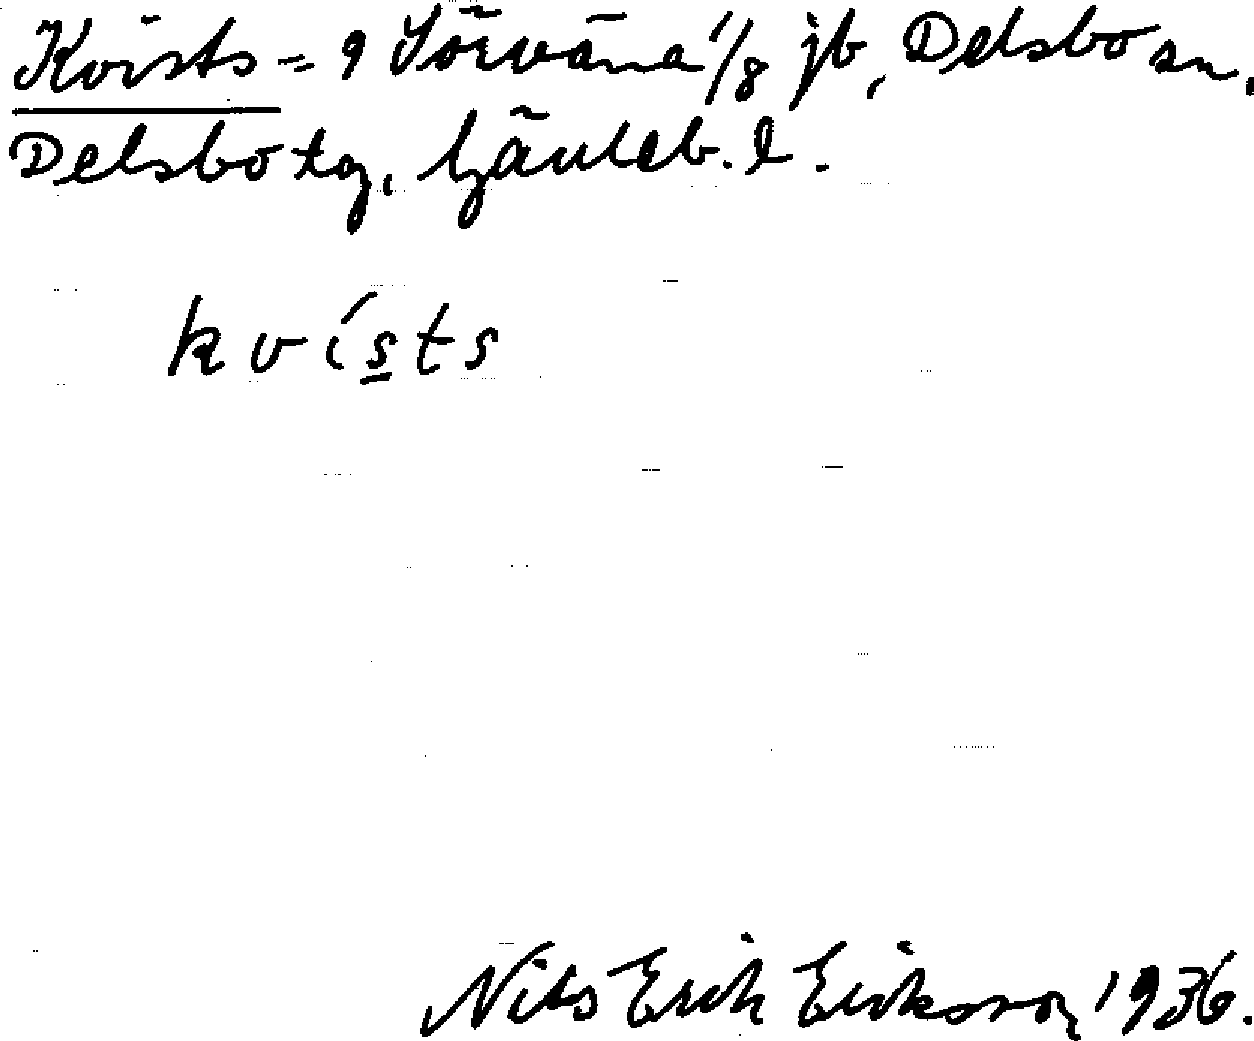 Kvists = 9 Sörväna 1/8 jb, Delsbo sn,
Delsbo tg, Gävleb. l.
kvísts
Nils Erik Eriksson 1936.